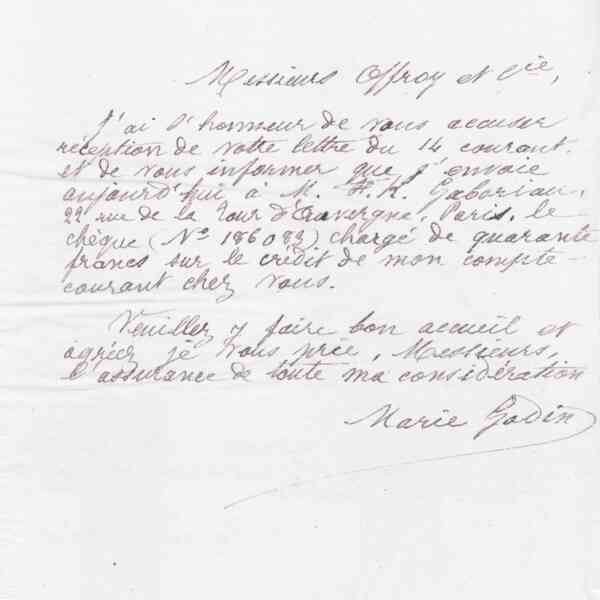 Messieurs Offroy et Cie,
J'ai l'honneur de vous accuser
réception de votre lettre du 14 courant.
et de vous informer que j'envoie
aujourd'hui à M. F. K. Gaboriau,
22 rue de la Tour d'Auvergne, Paris, le
chèque (No 186083) chargé de quarante
francs sur le crédit de mon compte-
courant chez vous.
Veuillez y faire bon accueil et
agréer je vous prie, Messieurs,
l'assurance de toute ma considération
Marie Godin